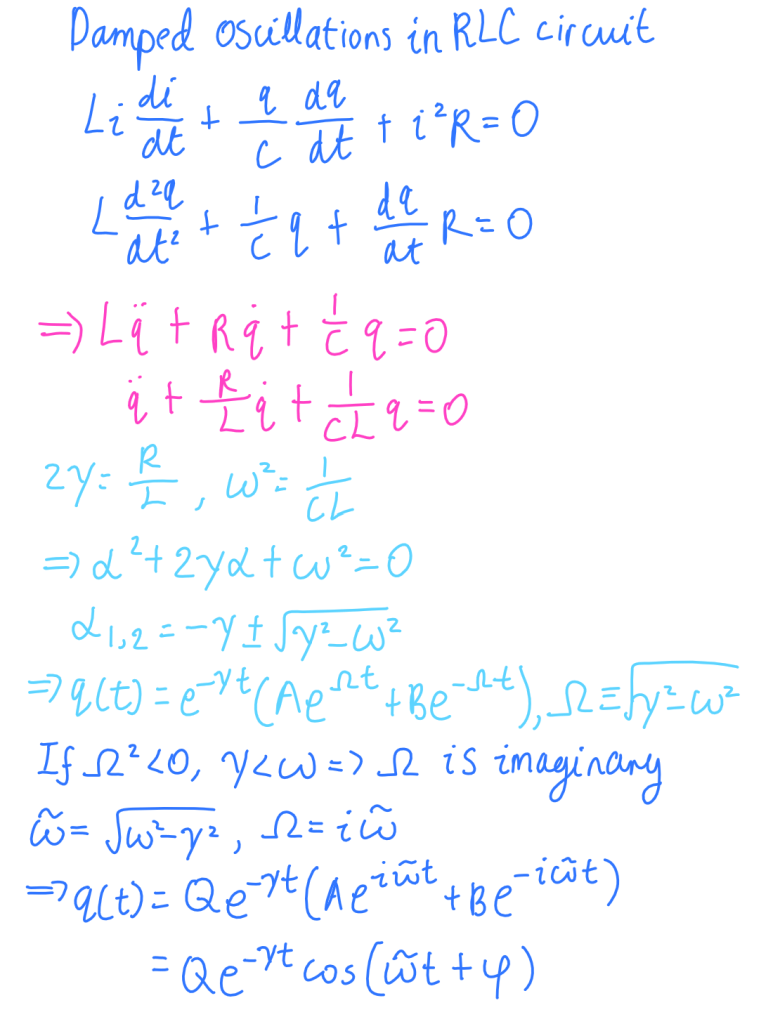 Damped oscillations in RLC circuit
Li di/dt + q/C dq/dt + i²R = 0
L d²q/dt² + 1/C q + dq/dt R = 0
⇒ Lq̈ + Rq̇ + 1/C q = 0
q̈ + R/L q̇ + 1/CL q = 0
2γ = R/L , ω² = 1/CL
⇒ α² + 2γα + ω² = 0
α₁,₂ = -γ ± √(γ²-ω²)
⇒ q(t) = e^(-γt) (Ae^(Ωt) + Be^(-Ωt)), Ω ≡ √(γ²-ω²)
If Ω² < 0, γ < ω => Ω is imaginary
ω̃ = √(ω²-γ²) , Ω = iω̃
⇒ q(t) = Qe^(-γt) (Ae^(iω̃t) + Be^(-iω̃t))
= Qe^(-γt) cos(ω̃t + φ)